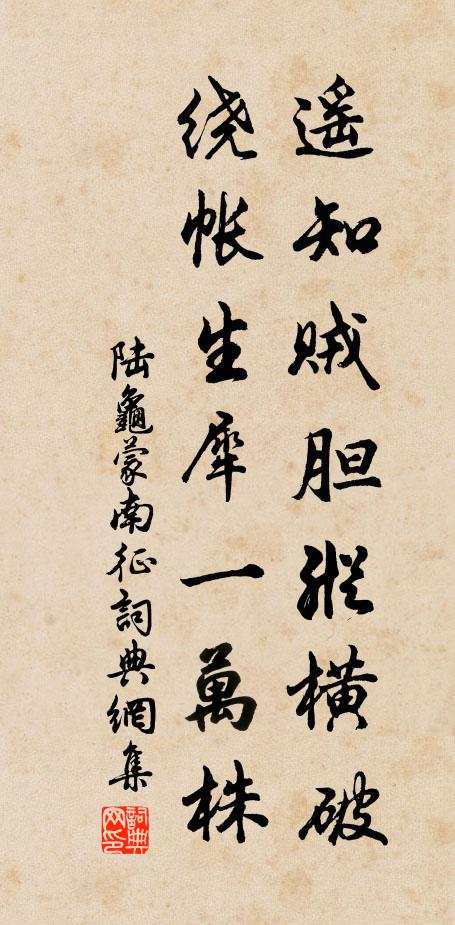 遥知贼胆縱橫破
绕帐生犀一萬株
陆龜蒙南征詞典網集
詞典网印